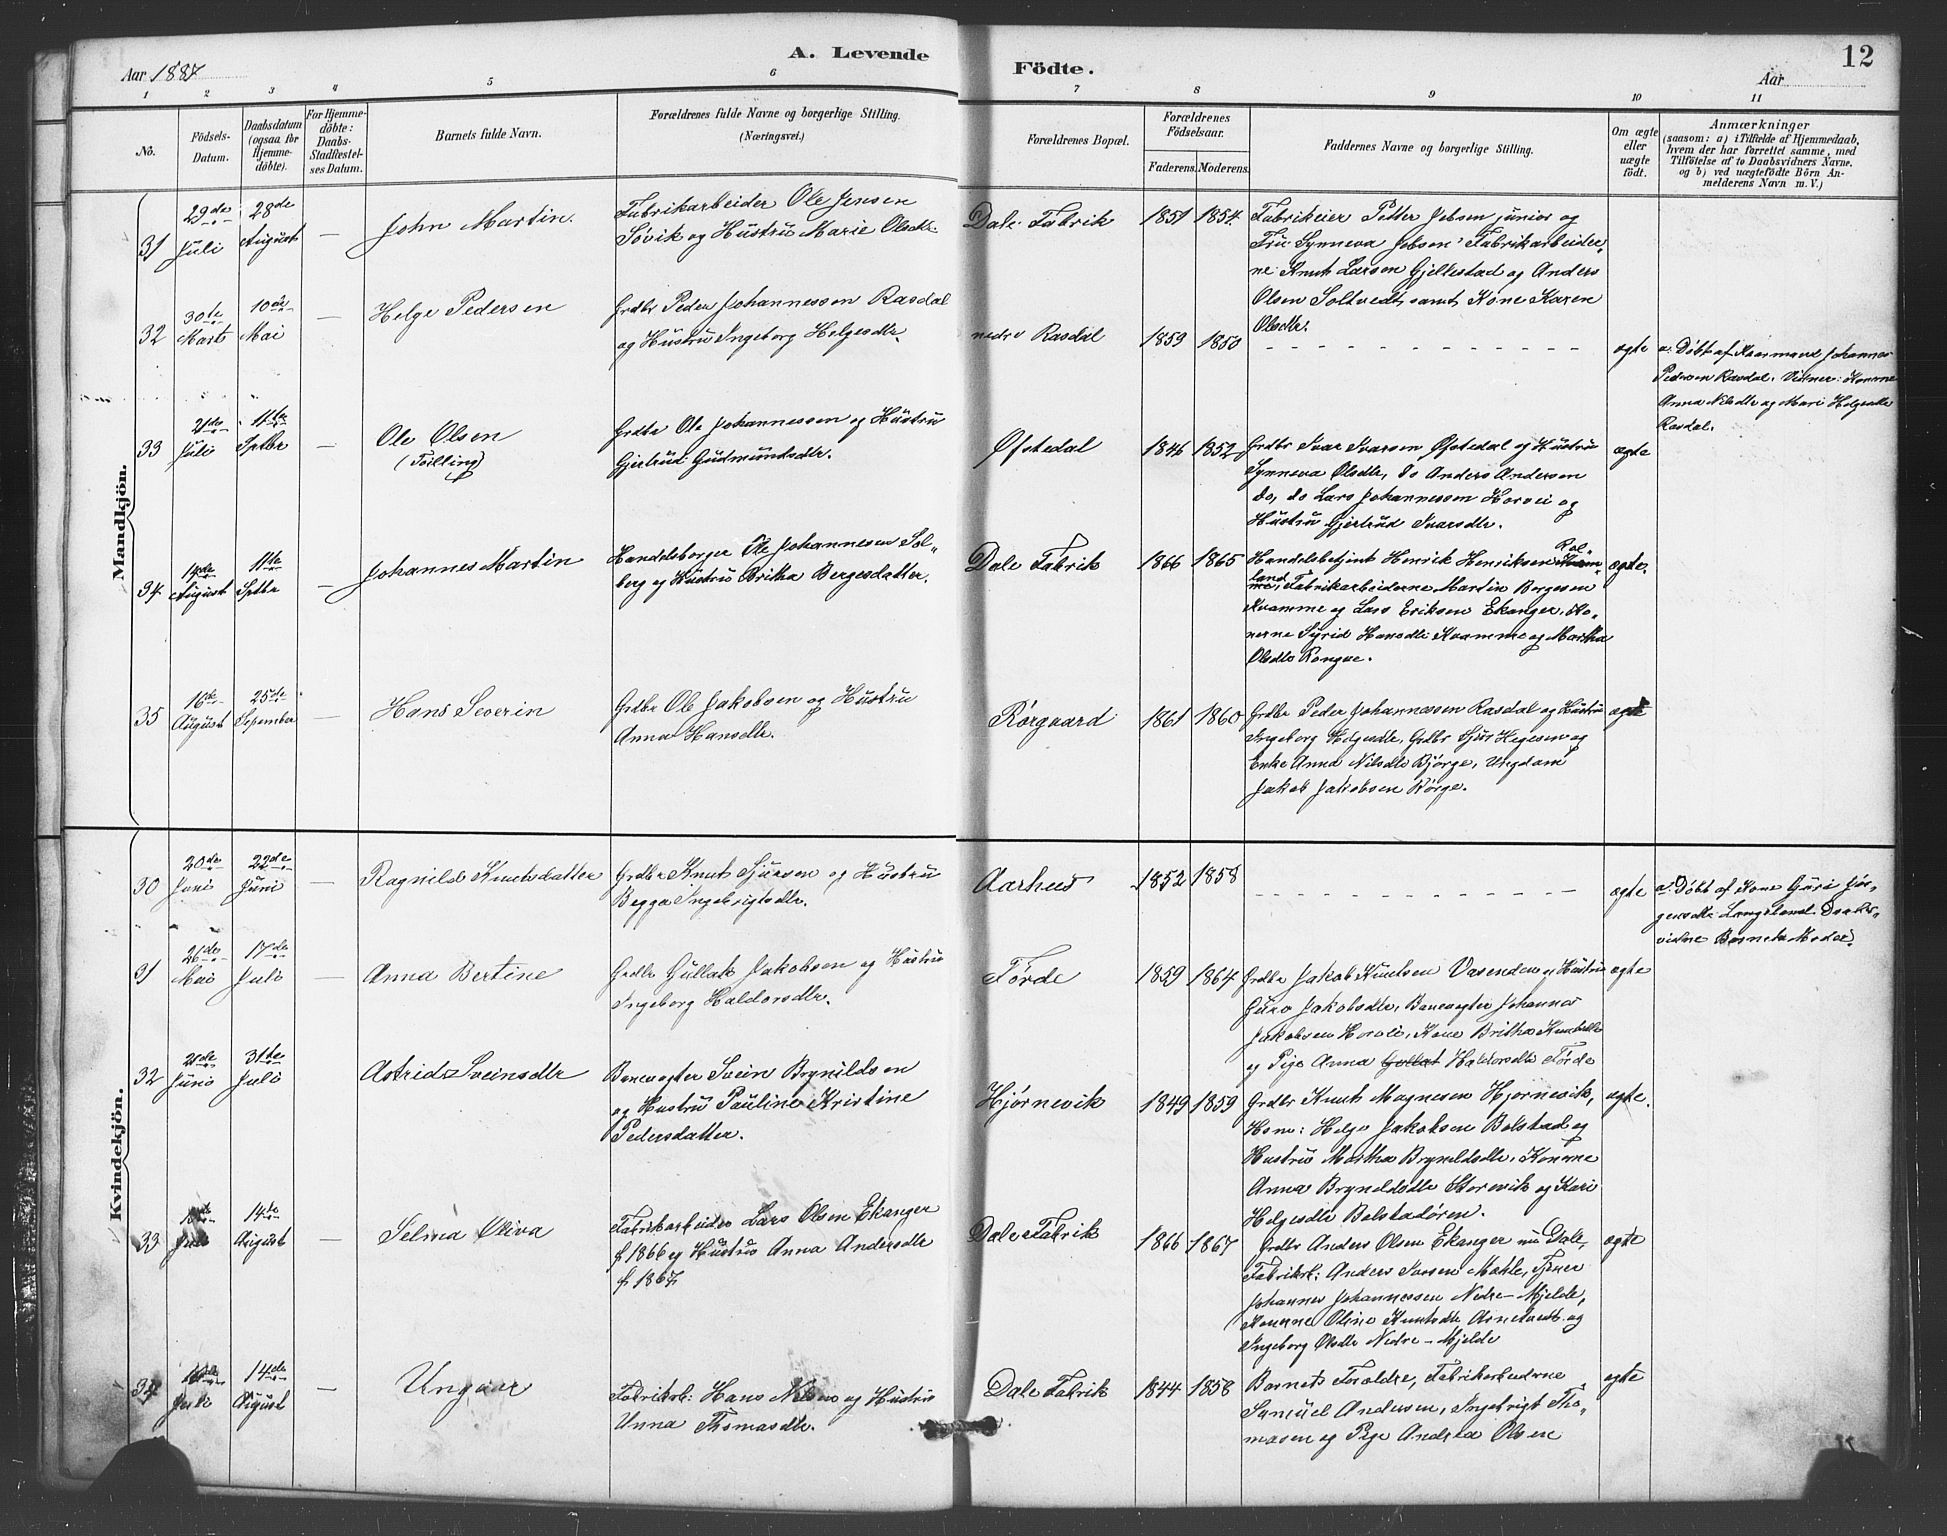 Aar 1887
A. Levende
Födte.
Aar
12
1 2 3 4 5 6 7 8 9 10 11
No.
Födsels-
Datum.
Daabsdatum
(ogsaa for
Hjemme-
döbte).
For Hjemme-
döbte:
Daabs-
Stadfestel-
ses Datum.
Barnets fulde Navn.
Forældrenes fulde Navne og borgerlige Stilling.
(Næringsvei.)
Forældrenes Bopæl.
Forældrenes
Födselsaar.
Faderens. Moderens.
Faddernes Navne og borgerlige Stilling.
Om ægte
eller
uægte
födt.
Anmærkninger
(saasom: a) i Tilfælde af Hjemmedaab,
hvem der har forrettet samme, med
Tilföielse af to Daabsvidners Navne.
og b) ved uægtefödte Börn An-
melderens Navn m. V.)
Mandkjön.
31
29de
Juli
28de
August
—
John Martin.
Fabrikarbeider Ole Jensen
Søvik og Hustru Marie Olsdtr.
Dale Fabrik
1851
1854.
Fabrikeier Petter Jebsen junior og
Fru Synneva Jebsen, Fabrikarbeider-
ne Knut Larsen Gjellestad og Anders
Olsen Soltvedt, samt Kone Karen
Olsdtr.
32
30te
Marts
10de
Mai
—
Helge Pedersen
Grdbr Peder Johannessen Rasdal
og Hustru Ingeborg Helgesdtr.
nedre Rasdal
1859
1850
ægte
a. Döbt af Kaarmand Johannes
Pedersen Rasdal. Vidner: Konerne
Anna Nilsdtr og Mari Helgesdtr
Rasdal.
33
21de
Juli
11te
Septbr
—
Ole Olsen
(Tvilling)
Grdbr Ole Johannessen og Hustru
Gjertrud Gudmundsdtr.
Øfstedal
1846
1852
Grdbr Ivar Ivarsen Øfstedal og Hustru
Synneva Olsdtr, do Anders Andersen
do, do Lars Johannessen Horvei og
Hustru Gjertrud Ivarsdtr.
ægte
34
14de
August
11te
Septbr
—
Johannes Martin
Handelsborger Ole Johannesen Sol-
berg og Hustru Britha Bergesdatter.
Dale Fabrik
1866
1865
Handelsbetjent Henrik Henriksen Rol-
land, Fabrikarbeiderne Martin Bergesen
Kvamme og Lars Eriksen Ekanger, Ko-
nerne Syrid Hansdtr Kvamme og Martha
Olsdtr Rongve.
ægte.
35
16de
August
25de
September
—
Hans Severin
Grdbr Ole Jakobsen og Hustru
Anna Hansdtr.
Rørgaard
1861
1860
Grdbr Peder Johannessen Rasdal og Hustru
Ingeborg Helgesdtr, Grdbr Sjur Hegesen og
Enke Anna Nilsdtr Bjørge, Ungdom
Jakob Jakobsen Rørge.
ægte
Kvindekjön.
30
20de
Juni
22de
Juni
—
Ragnilde Knutsdatter
Grdbr Knut Sjursen og Hustru
Begga Ingebrigtsdtr.
Aarhus
1852
1858
ægte
a. Döbt af Kone Guri Jør-
gensdtr Langeland. Daabs-
vidne Barnets Moder.
31
26de
Mai
17de
Juli
—
Anna Bertine
Grdbr Gullak Jakobsen og Hustru
Ingeborg Haldorsdtr.
Førde
1859
1864
Grdbr Jakob Knutsen Vasenden og Hustru
Guro Jakobsdtr, Banevogter Johannes
Jakobsen Horvei, Kone Britha Knutsdtr
og Pige Anna Haldorsdtr Førde
ægte
32
21de
Juni
31te
Juli
Astrid Sveinsdtr
Banevogter Svein Brynildsen
og Hustru Pauline Kristine
Pedersdatter.
Hjørnevik
1849
1859
Grdbr Knut Magnesen Hjørnevik,
Hsm: Helge Jakobsen Bolstad og
Hustru Martha Brynildsdtr, Konerne
Anna Brynildsdtr Storevik og Kari
Helgesdtr Bolstadören.
ægte.
33
Juli
14de
August
—
Selma Oliva
Fabrikarbeider Lars Olsen Ekanger
f. 1866 og Hustru Anna Andersdtr
f. 1867.
Dale Fabrik
1866
1867
Grdbr Anders Olsen Ekanger nu Dale,
Fabrikb: Anders Mahle, Tjener
Johannes Johannessen Nedre-Mjelde,
Konerne Oline Knutsdtr Arnetvedt og
Ingeborg Olsdtr Nedre-Mjelde
ægte
34
Juli
14de
August
—
Fabrikb: Hans Nilsen og Hustru
Unna Thomasdtr.
Dale Fabrik
1844
1858
Barnets Foreldre, Fabrikarbeiderne
Samuel Andersen, Ingebrigt Tho-
masen og Pige Andrea Olsen
ægte